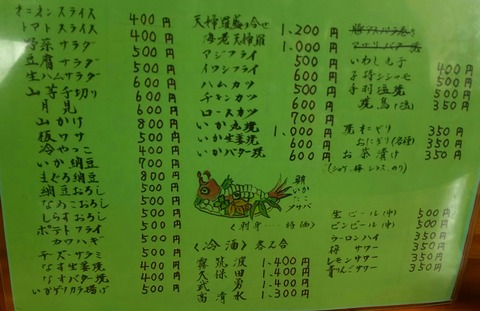 オニオンスライス 400円
トマトスライス 400円
野菜サラダ 600円
豆腐サラダ 500円
生ハムサラダ 600円
山芋千切り 600円
月見 600円
山かけ 800円
板ワサ 500円
冷やっこ 400円
いか納豆 700円
まぐろ納豆 800円
納豆おろし 500円
なめこおろし 500円
しらすおろし 500円
ポテトフライ 500円
カワハギ 500円
チーズ・サラミ 500円
なす生姜焼 400円
なすバター焼 400円
いかゲソカラ揚げ 500円
天婦羅盛り合せ 1,200円
海老天婦羅 1,000円
アジフライ 500円
イワシフライ 500円
ハムカツ 600円
チキンカツ 600円
ロースカツ 700円
いか丸焼 1,000円
いか生姜焼 600円
いかバター焼 600円
いわし丸干
子持シシャモ 400円
手羽塩焼 500円
焼鳥 500円
焼おにぎり 350円
おにぎり(各種) 350円
お茶漬け 350円
いか
たこ
(刺身 特価)
〈冷酒〉 300ml
霧筑波 1,400円
久保田 1,400円
武勇 1,400円
高清水 1,300円
生ビール(中) 500円
ビンビール(中) 500円
ウーロンハイ 350円
梅サワー 350円
レモンサワー 350円
青りんごサワー 350円